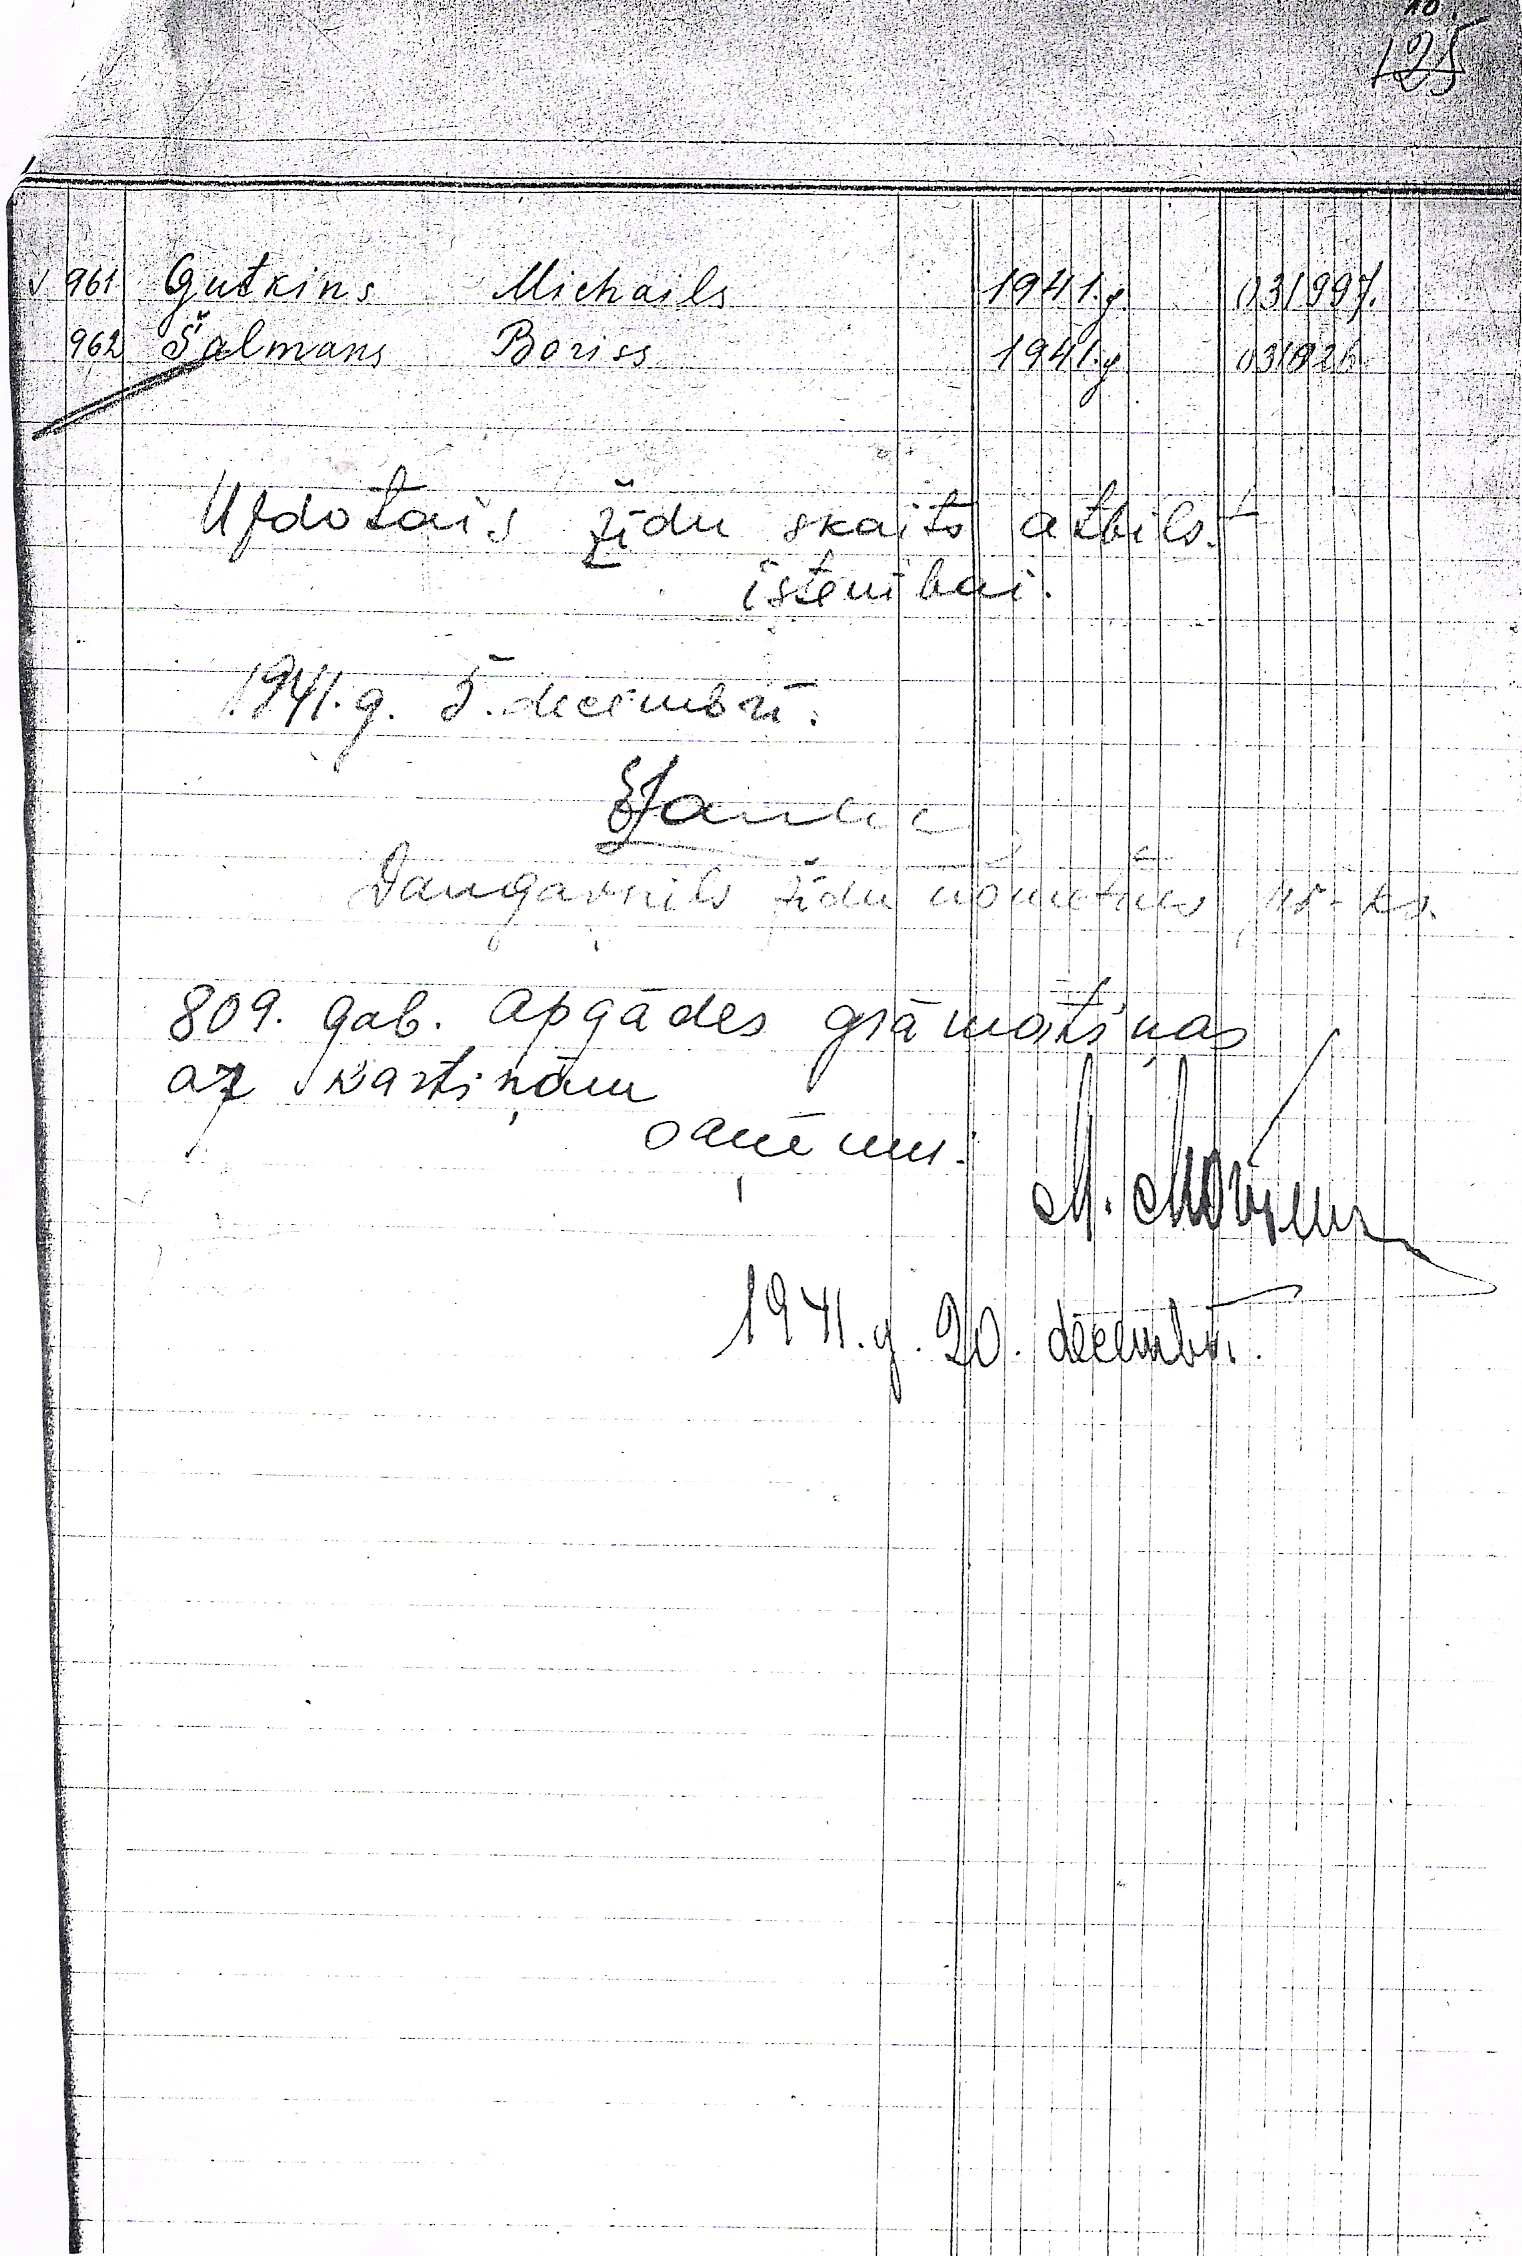 125
961 Gutkins Michails 1941.g. 031997.
962 Šalmans Boriss 1941.g
Uzdotais žīdu skaits atbilst
īstenībai.
1941.g. 5. decembrī.
Daugavpils žīdu nometnes pr-ks.
809. gab. apgādes grāmatiņas
ar kartiņām
saņēmu:
1941.g. 20. decembrī.